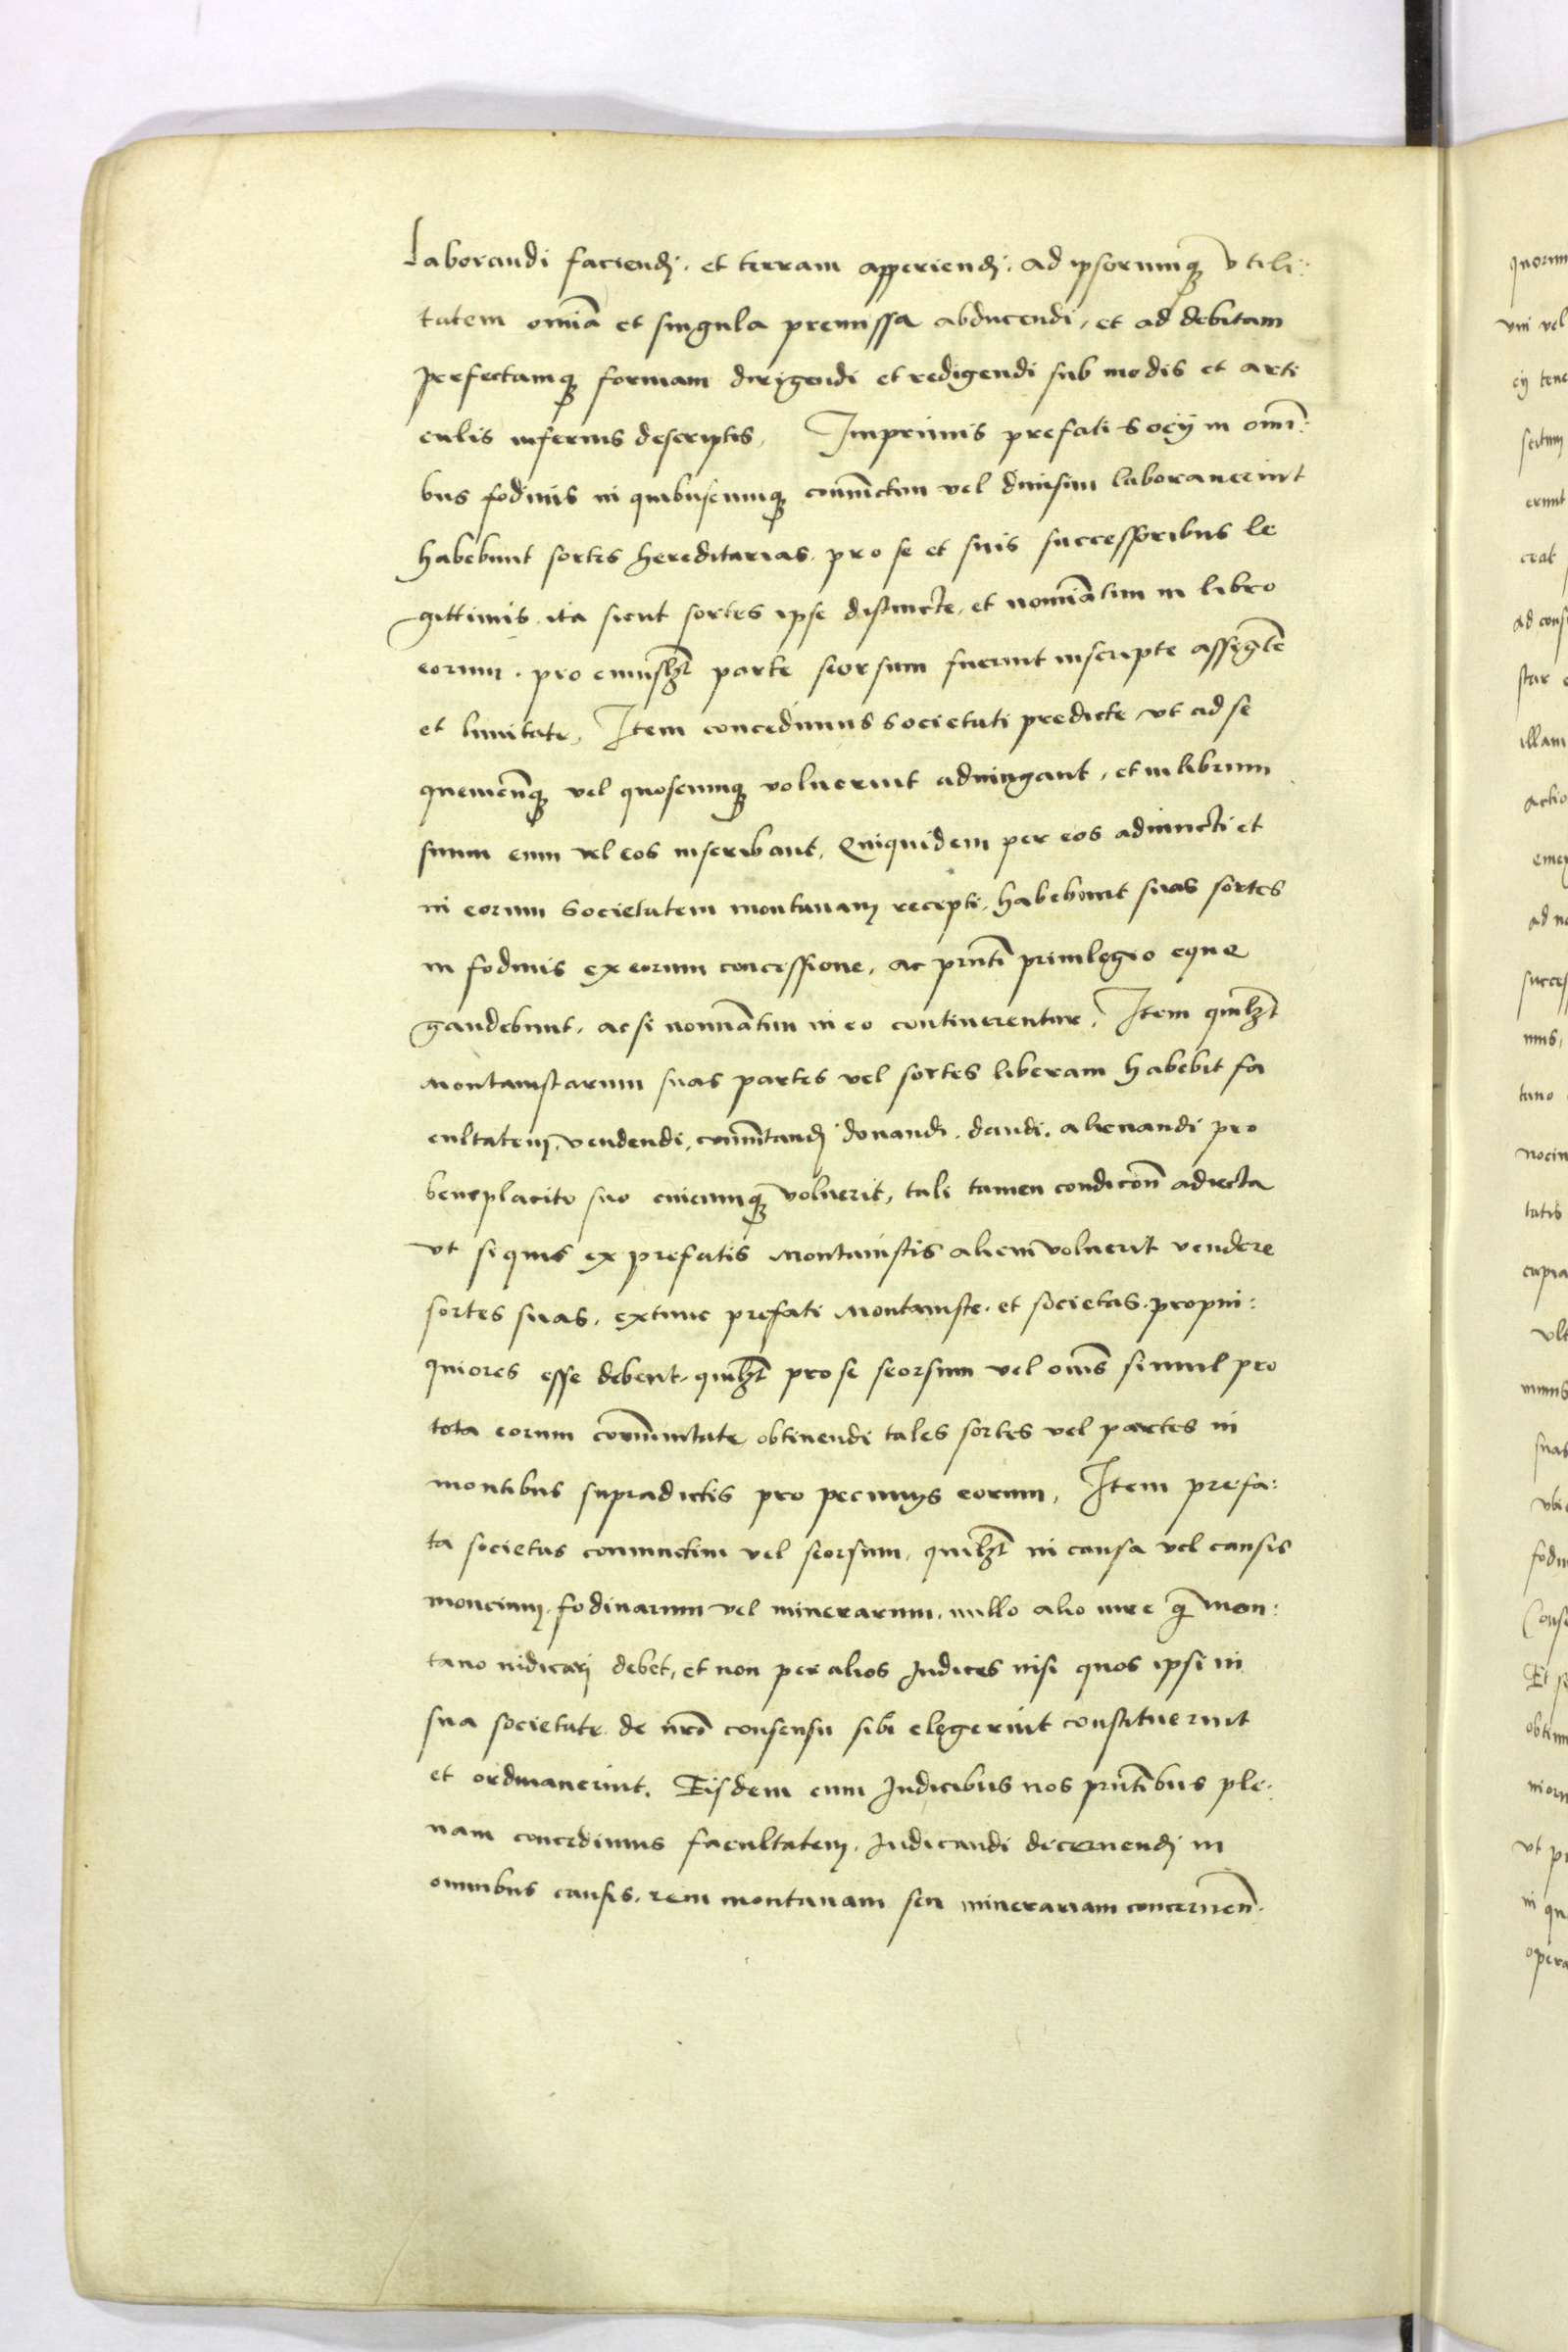 Laborandi faciendj. et terram apperiendj. ad ipsorumqꝫ vtili:
tatem omīa et singula premissa abducendi, et ad debitam
perfectamqꝫ formam dirigendi et redigendi sub modis et arti
culis inferius descriptis, Imprimis prefati Socij in omī:
bus fodinis in quibuscumqꝫ coniūctim vel diuisim laborauerint
habebunt sortes hereditarias. pro se et suis successoribus le
gittimis. ita sicut sortes ipse distincte. et nomīatim in libro
eorum. pro cuiuslꝫt parte seorsum fuerint inscripte assigᷠte
et limitate, Item concedimus societati predicte vt ad se
quemcūqꝫ vel quoscumqꝫ voluerint adiungant, et in librum
suum eum vel eos inscribant, Quiquidem per eos adiuncti et
in eorum societatem montanam recepti, habebunt suas sortes
in fodinis ex eorum concessione, ac pn̄ti priuilegio eque
gaudebunt. acsi nomīatim in eo continerentur, Item quilꝫt
Montanistarum suas partes vel sortes liberam habebit fa
cultatem, vendendi, comūtandj donandi. dandi. alienandi pro
beneplacito suo cuicumqꝫ voluerit, tali tamen condicōn adiecta
vt si quis ex prefatis Montanistis alicui voluerit vendere
sortes suas, extunc prefati Montaniste. et societas. propin:
quiores esse debent. quilꝫt pro se seorsum vel om̄s simul pro
tota eorum comūnitate obtinendi tales sortes vel partes in
montibus supradictis pro pecunijs eorum, Item prefa:
ta societas coniunctim vel seorsum, quilꝫt in causa vel causis
moncium. fodinarum vel minerarum. nullo alio iure qᷓ mon:
tano iudicarj debet, et non per alios Iudices nisi quos ipsi in
sua societate de nr̄o consensu sibi elegerint constituerint
et ordinauerint. Eisdem eum Iudicibus nos pn̄tibus ple:
nam concedimus facultatem. Iudicandi decernendj in
omnibus causis. rem montanam seu minerariam concernen̄.
quorum
vni vel
cij tene
erunt
ad cons
illam
ad no
succes
nus,
tano
tatis
cupia
suas
Et se
vt pr
in qu
opera